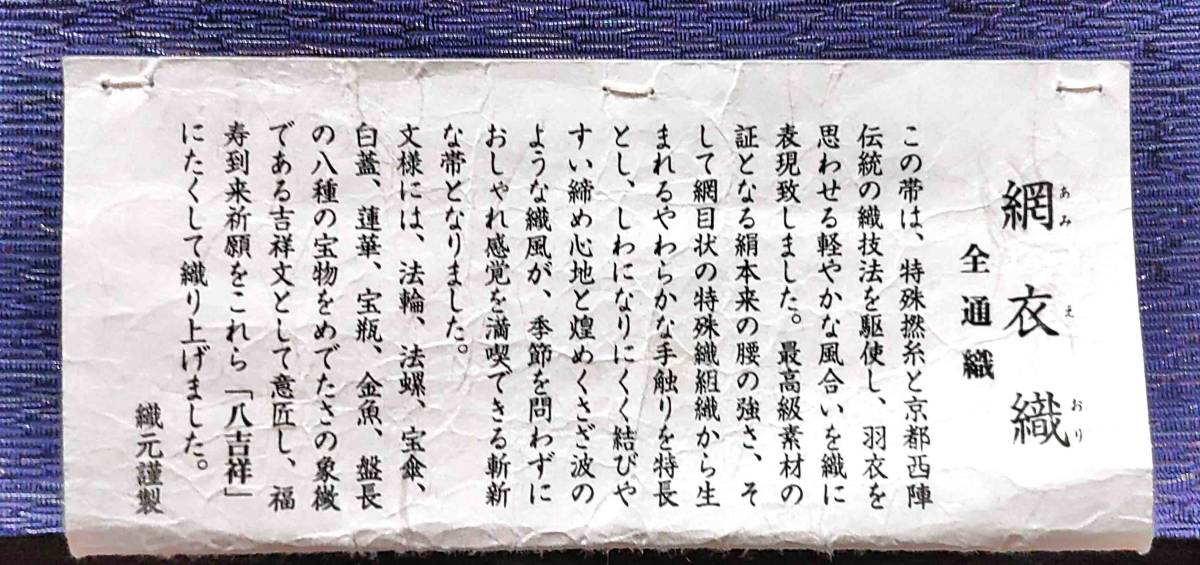 網衣織
あみえおり
全通織
この帯は、特殊撚糸と京都西陣
伝統の織技法を駆使し、羽衣を
思わせる軽やかな風合いを織に
表現致しました。最高級素材の
証となる絹本来の腰の強さ、そ
して網目状の特殊織組織から生
まれるやわらかな手触りを特長
とし、しわになりにくく結びや
すい締め心地と煌めくさざ波の
ような織風が、季節を問わずに
おしゃれ感覚を満喫できる斬新
な帯となりました。
文様には、法輪、法螺、宝傘、
白蓋、蓮華、宝瓶、金魚、盤長
の八種の宝物をめでたさの象徴
である吉祥文として意匠し、福
寿到来祈願をこれら「八吉祥」
にたくして織り上げました。
織元謹製